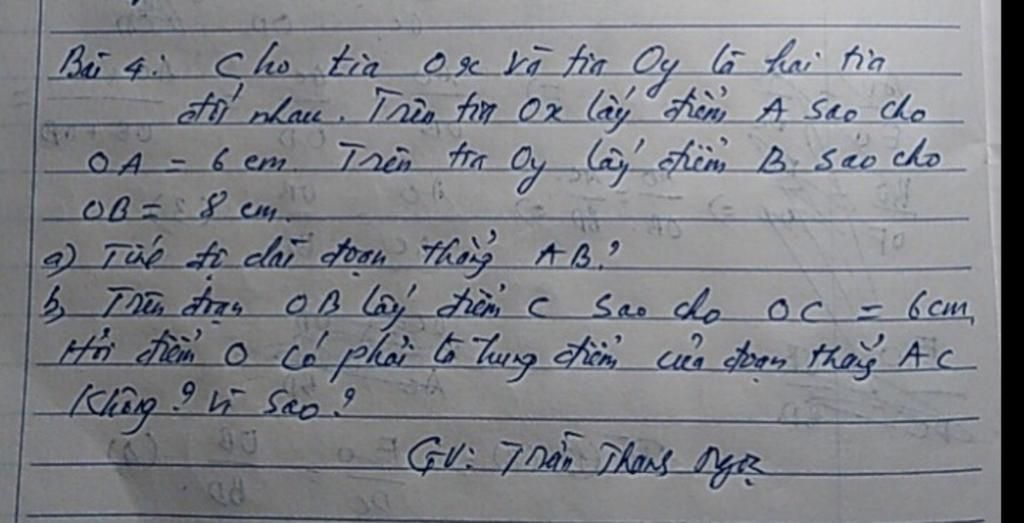 Bài 4: Cho tia Ox và tia Oy là hai tia
đối nhau. Trên tia Ox lấy điểm A sao cho
OA = 6 cm. Trên tia Oy lấy điểm B sao cho
OB = 8 cm.
a) Tính độ dài đoạn thẳng AB?
b, Trên đoạn OB lấy điểm C sao cho OC = 6cm,
Hỏi điểm O có phải là trung điểm của đoạn thẳng AC
không? Vì sao?
GV: Trần Thanh